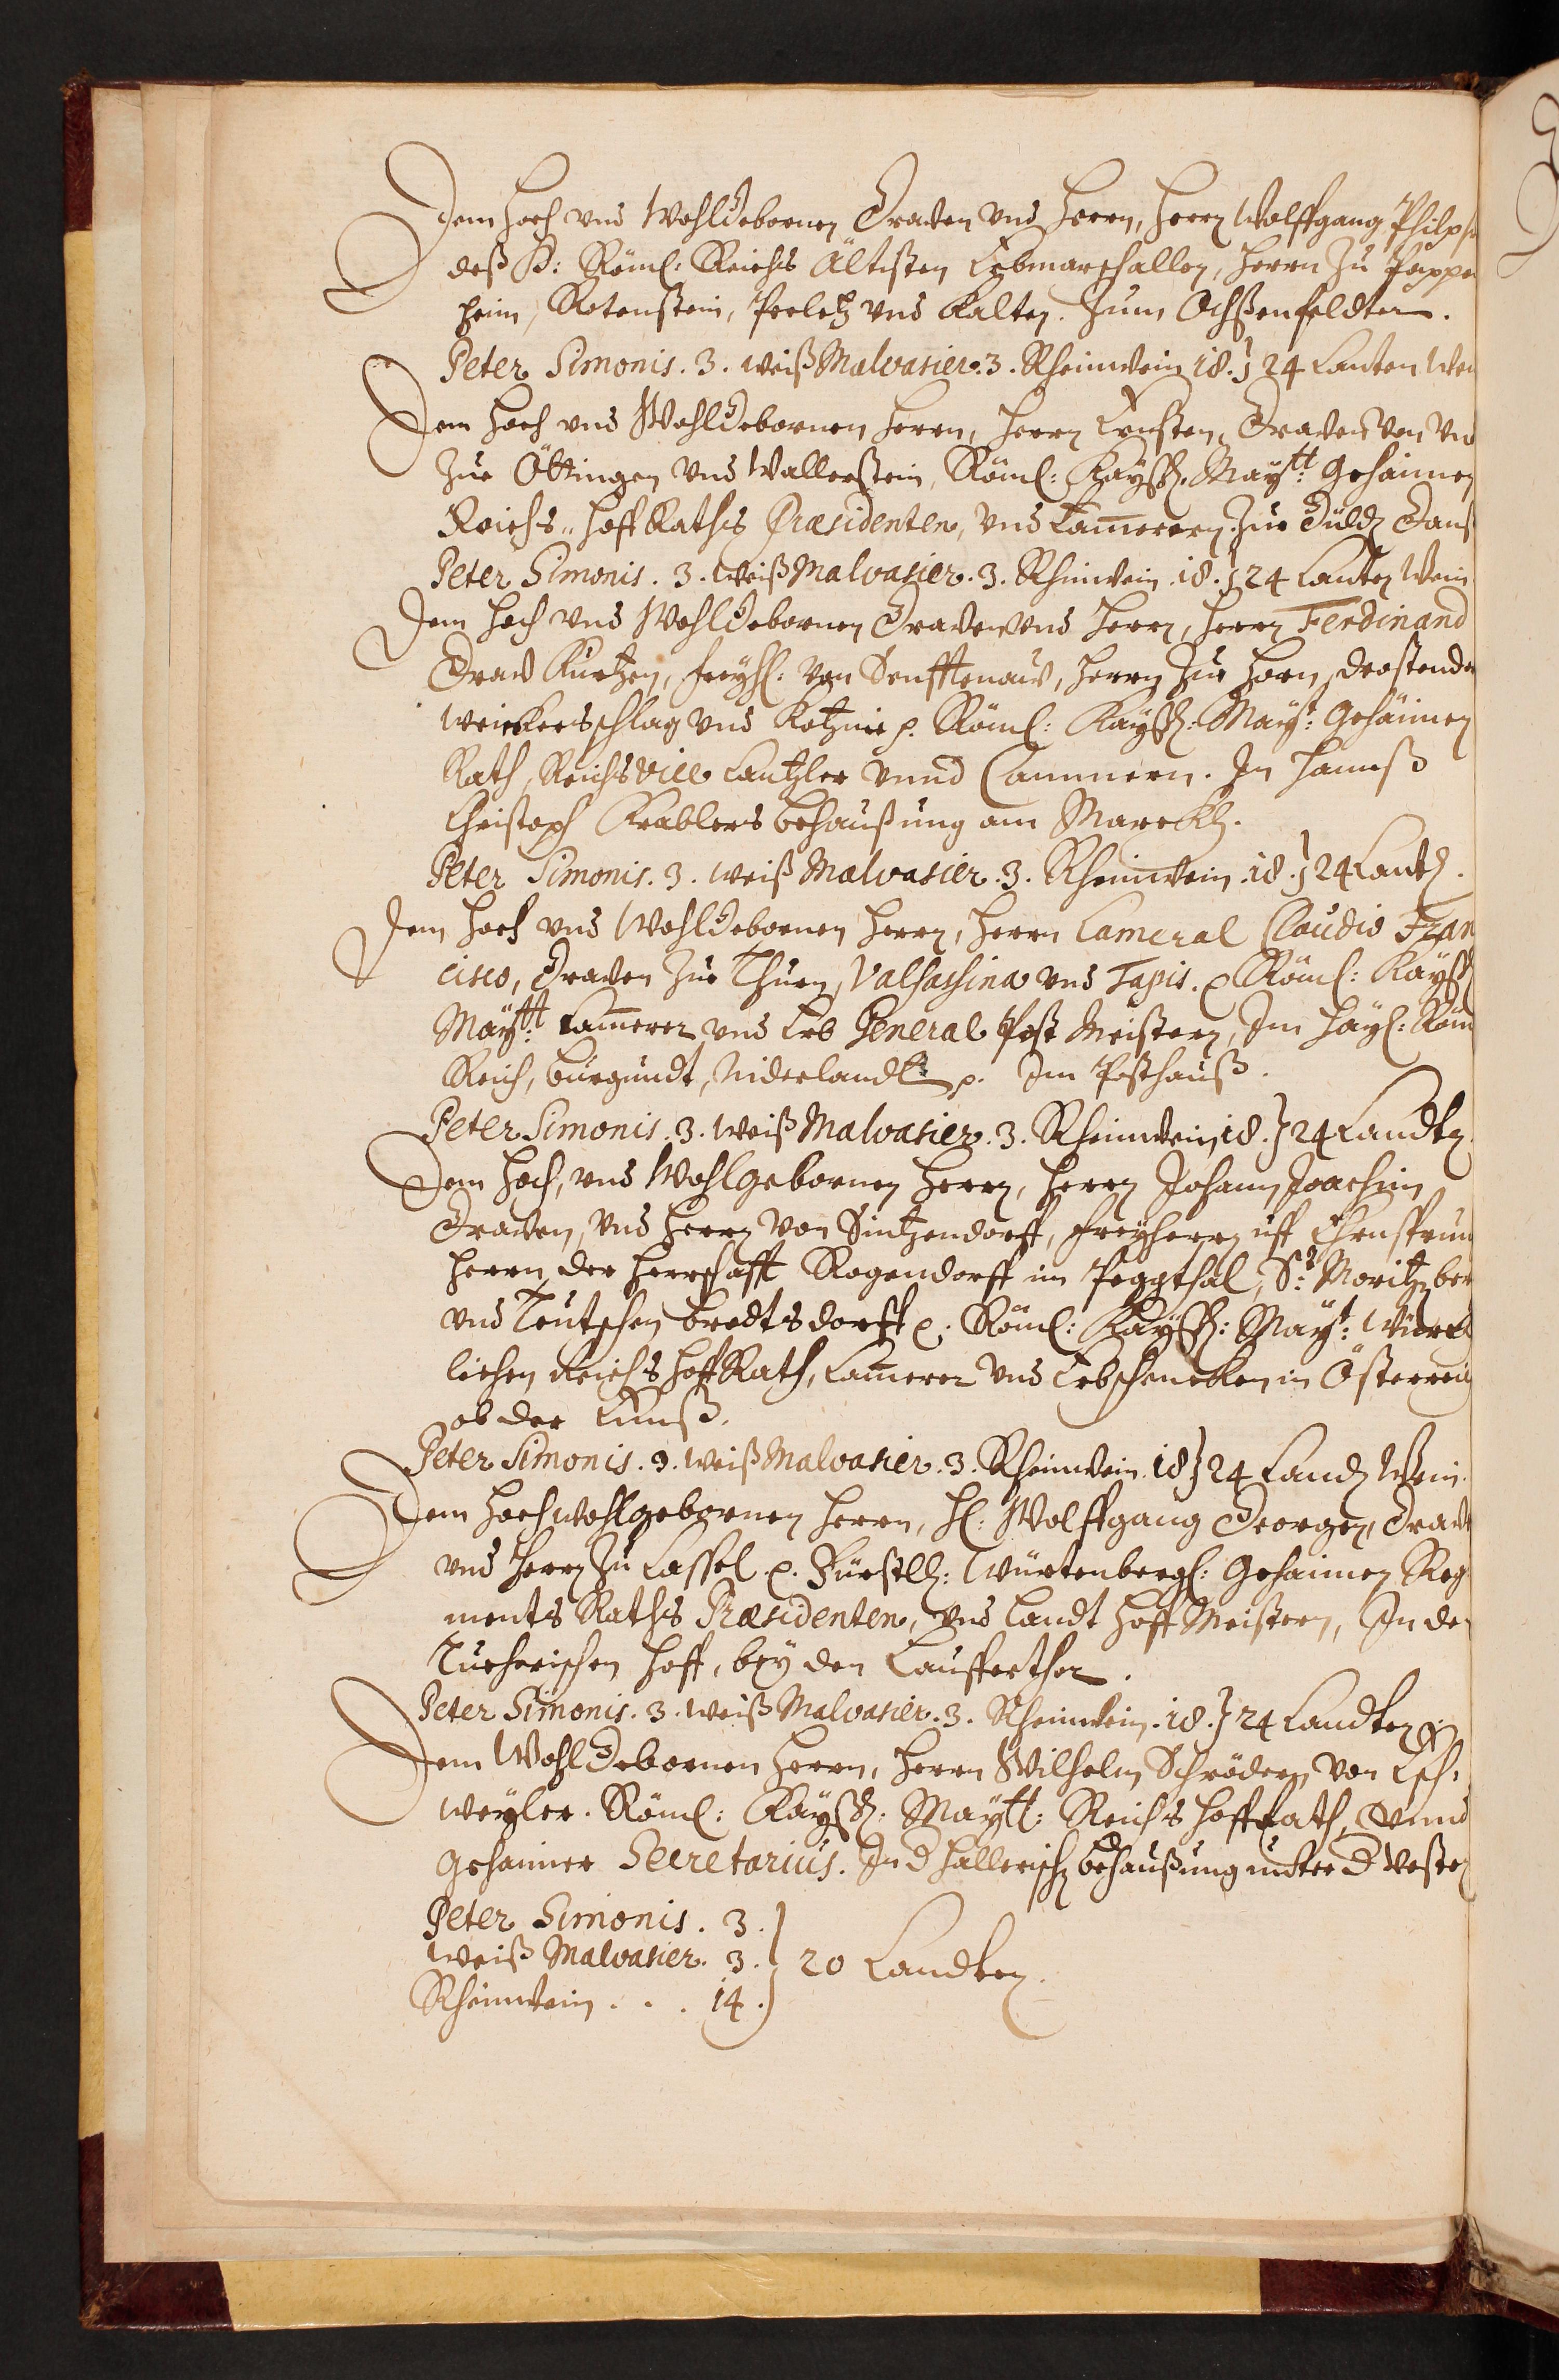 Dem Hoch vnd WohlGebornen Graven vnd Herrn, Herrn Wolffgang Philips
deß H: Röml: Reichs Ältisten Erbmarschallen, Herrn Zu Pappen
heim, Rotenstein, vnd Kalten. Zum Ochßenfeldter.
Peter Simonis. 3. weiß Malvasier. 3. Rheinwein 18. } 24 Kanten Wein
Dem Hoch vnd WohlGebornen Herrn, Herrn Ernsten, Graven von vnd
Zue Öttingen vnd Wallerstein, Röml: Kayßl. Maytt: Gehaimen
Reichs Hoff Raths Præsidenten, vnd Cammerern. Zur Güld Ganß
Peter Simonis. 3. weiß Malvasier. 3. Rheinwein. 18. } 24 Kanten Wein
Dem Hoch vnd WohlGebornen Graven vnd Herrn, Herrn Ferdinand
Grav Kurtzen, Freyhl: von Senfftenaw, Herrn Zue Horn, Drostendorf
weickerschlag vnd Kotznie p. Röml: Kayßl: Mayt: Gehäimen
Rath, Reichs vice Cantzler vnnd Cammern. In Hannß
Christoph Krablers Behaußung am Marckh.
Peter Simonis. 3. weiß Malvasier. 3. Rheinwein. 18. } 24 Kanten.
Dem Hoch vnd WohlGebornen Herrn, Herrn Lameral Claudio Fran
cisco, Graven Zue Thurn, Valsassina vnd Tapis. p Röml: Kayßl
Maytt: Cammerer vnd Erb General Post Meistern, Im Hayl: Röm
Reich, Burgundt, Niderlandt p. Im Posthauß.
Peter Simonis. 3. weiß Malvasier. 3. Rheinwein 18. } 24 Kandten
Dem Hoch, vnd Wohlgebornen Herrn, Herrn Johann Joachim
Graven, vnd Herrn von Sintzendorff, Freyherrn uff Ehrnsprun
Herrn der Herrschafft Rogendorff im Poggthal, St: Moritzber
vnd Teutschen bredtsdorff p. Röml: Kayßl: Mayt: Würck
lichen Reichs Hoff Rath, Cammerer vnd Erbschencken in Österreich
ob der Ennß.
Peter Simonis. 3. weiß Malvasier. 3. Rheinwein. 18 } 24 Kand Wein.
Dem Hochwohlgebornen Herrn, Hl: Wolffgang Georgen, Grave
vnd Herrn Zu Castel p. Fürstll: Würtenbergl: Gehaimen Reg
ments Raths Præsidenten, vnd Landt Hoff Meistern, In der
Tucherischen Hoff, bey den Laufferthor.
Peter Simonis. 3. weiß Malvasier. 3. Rheinwein. 18. } 24 Kandten
Dem WohlGebornen Herrn, Herrn Wilhelm Schrödern von Lsch:
weyler. Röml: Kayßl: Maytt: Reichs Hoff Rath, vnnd
gehaimer Secretarius. In d Hallerisch behaußung unter d vesten
Peter Simonis. 3.
weiß Malvasier. 3. } 20 Kandten.
Rheinwein . . . 14.